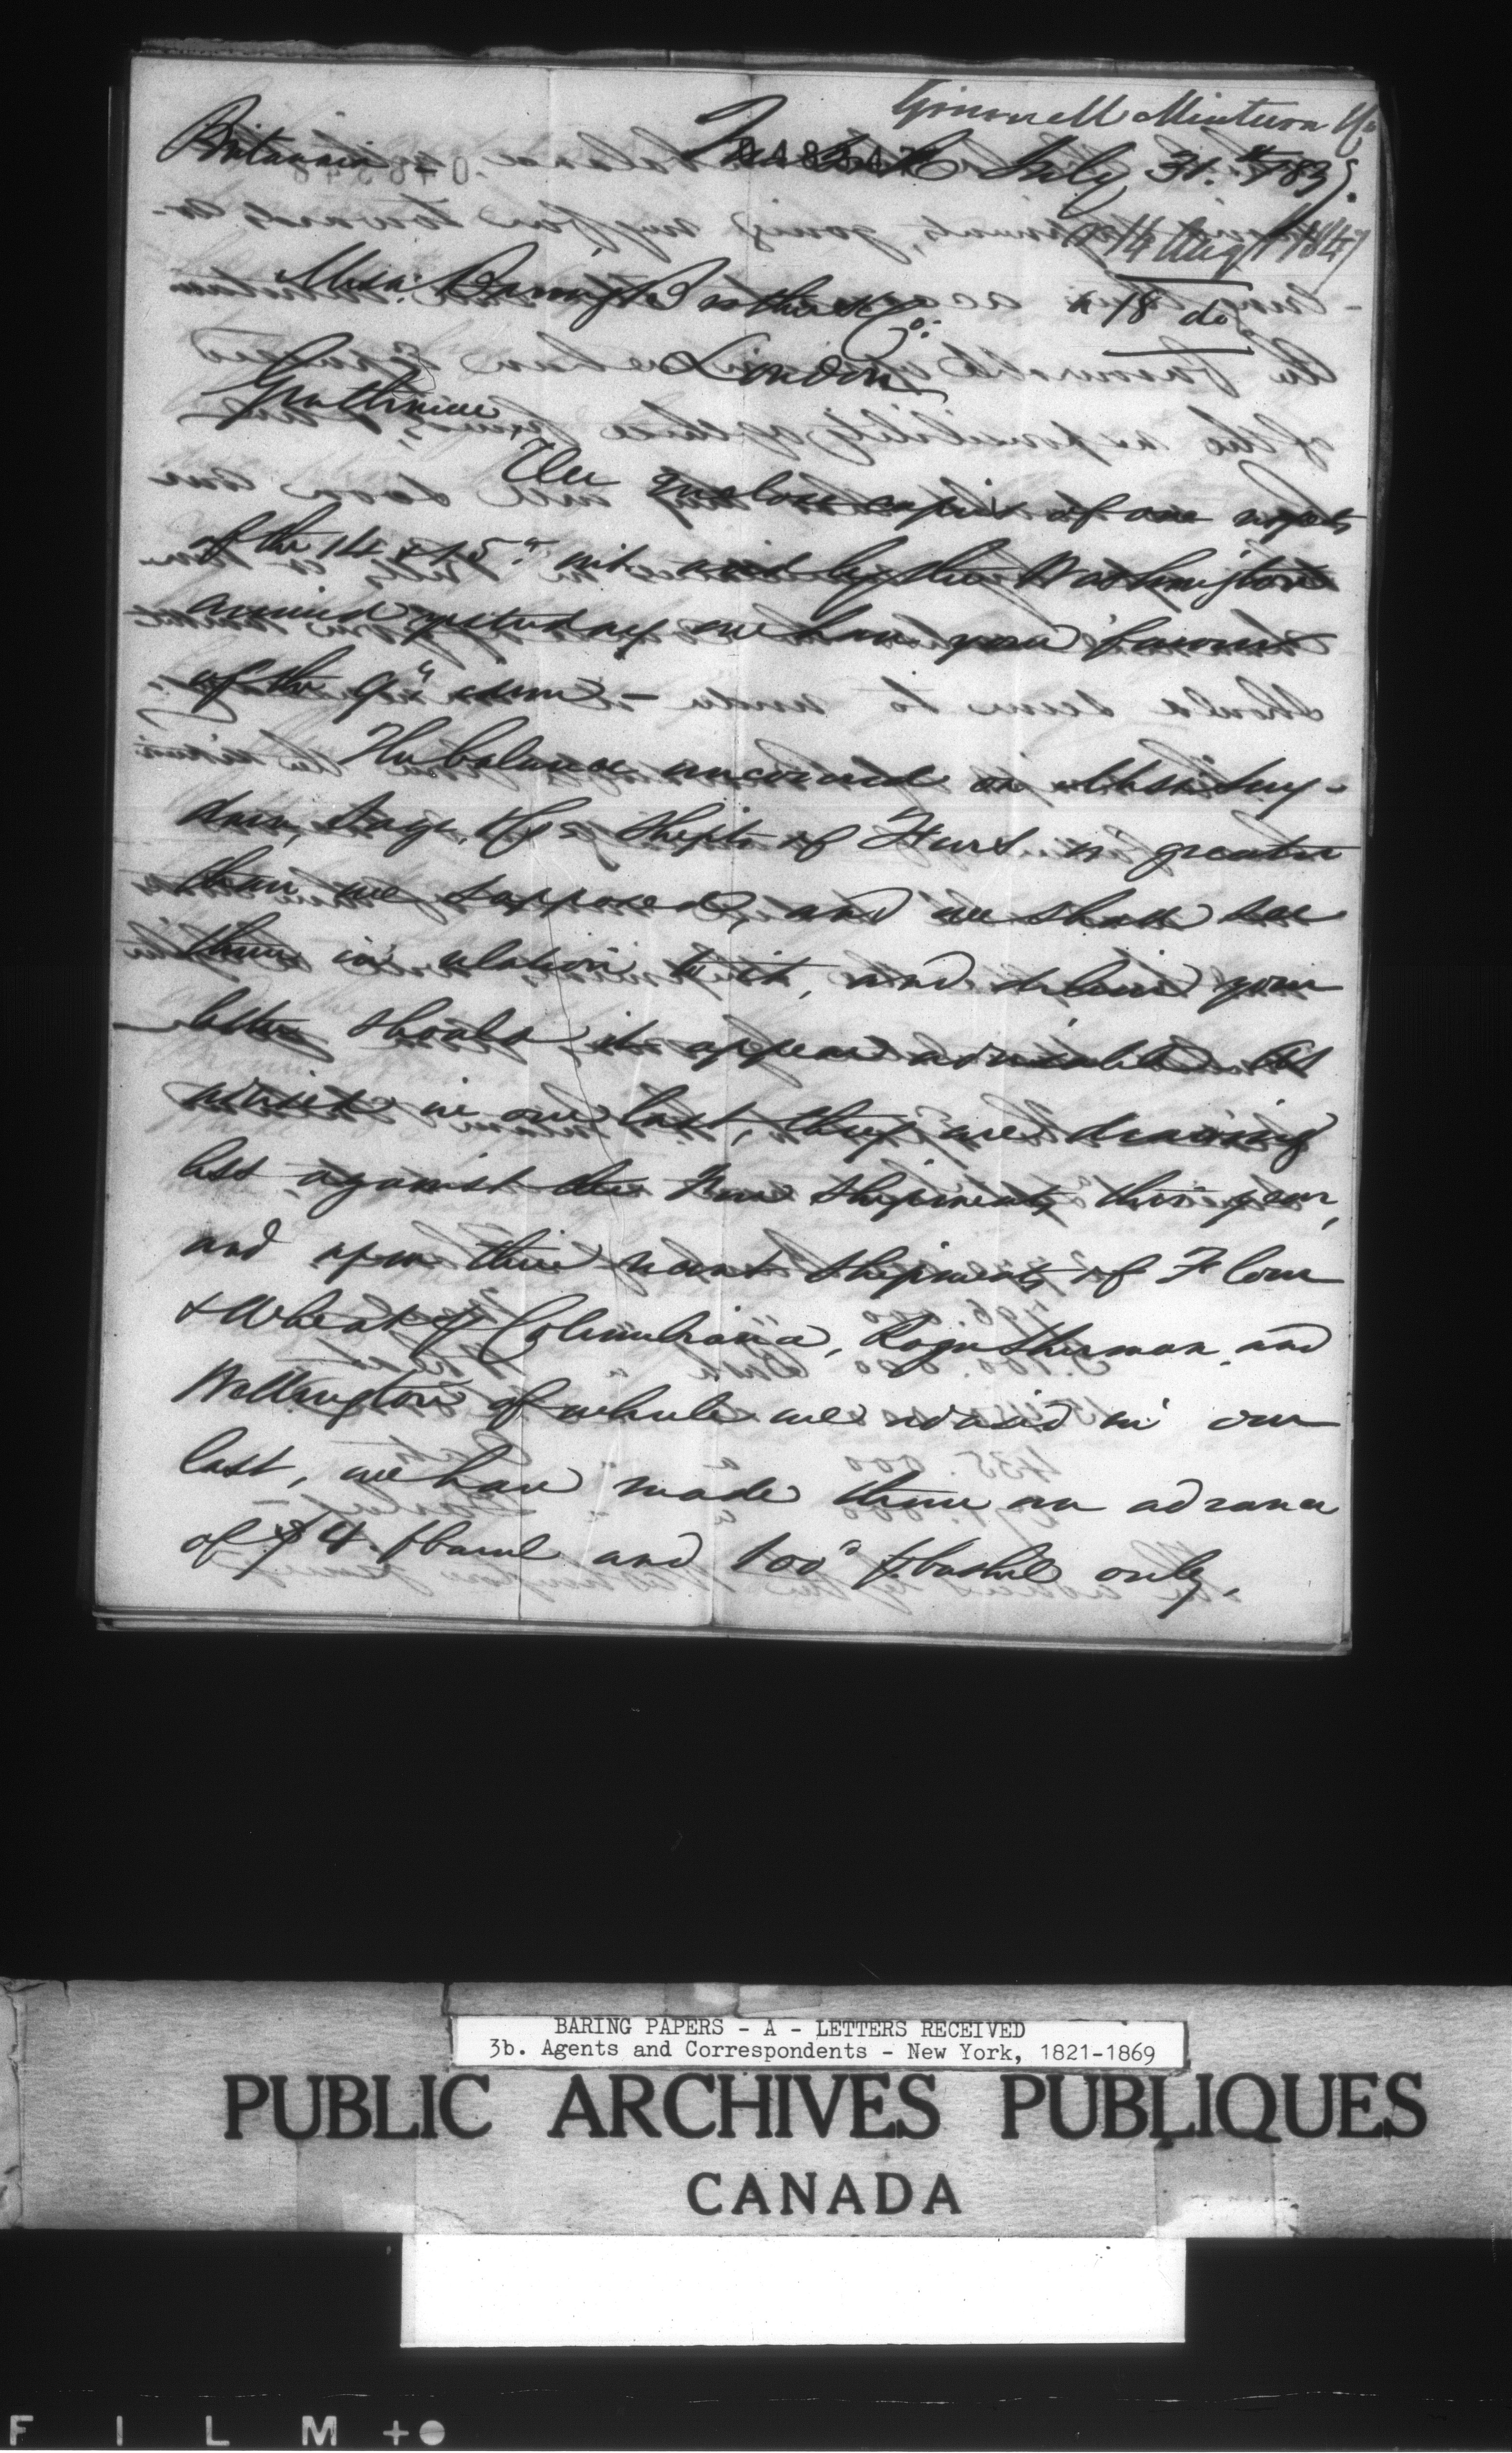 Grinnell Minturn & Co
Britannia
New York July 31st 183
048347
14 Aug 1847
a 18 do
Messrs Baring Brothers & Co:
London
Gentlemen
We enclose copies of our respects
of the 14 & 15th inst and by the Washington
arrived yesterday we have your favour
of the 9th idem –
The balance uncovered on Messrs Suy-
dam, Sage, & Co's shipts of Flour is greater
than we supposed, and we shall see
them in relation to it, and deliver your
letter should it appear advisable. As
advised in our last, they are drawing
less against the New shipments this year,
and upon their recent shipments of Flour
& Wheat Columbiana, Roger Sherman, and
Wellington of which we advised in our
last, we have made them an advance
of $4. barrel and 100c bushel only.
BARING PAPERS - A - LETTERS RECEIVED
3b. Agents and Correspondents - New York, 1821-1869
PUBLIC ARCHIVES PUBLIQUES
CANADA
FILM +